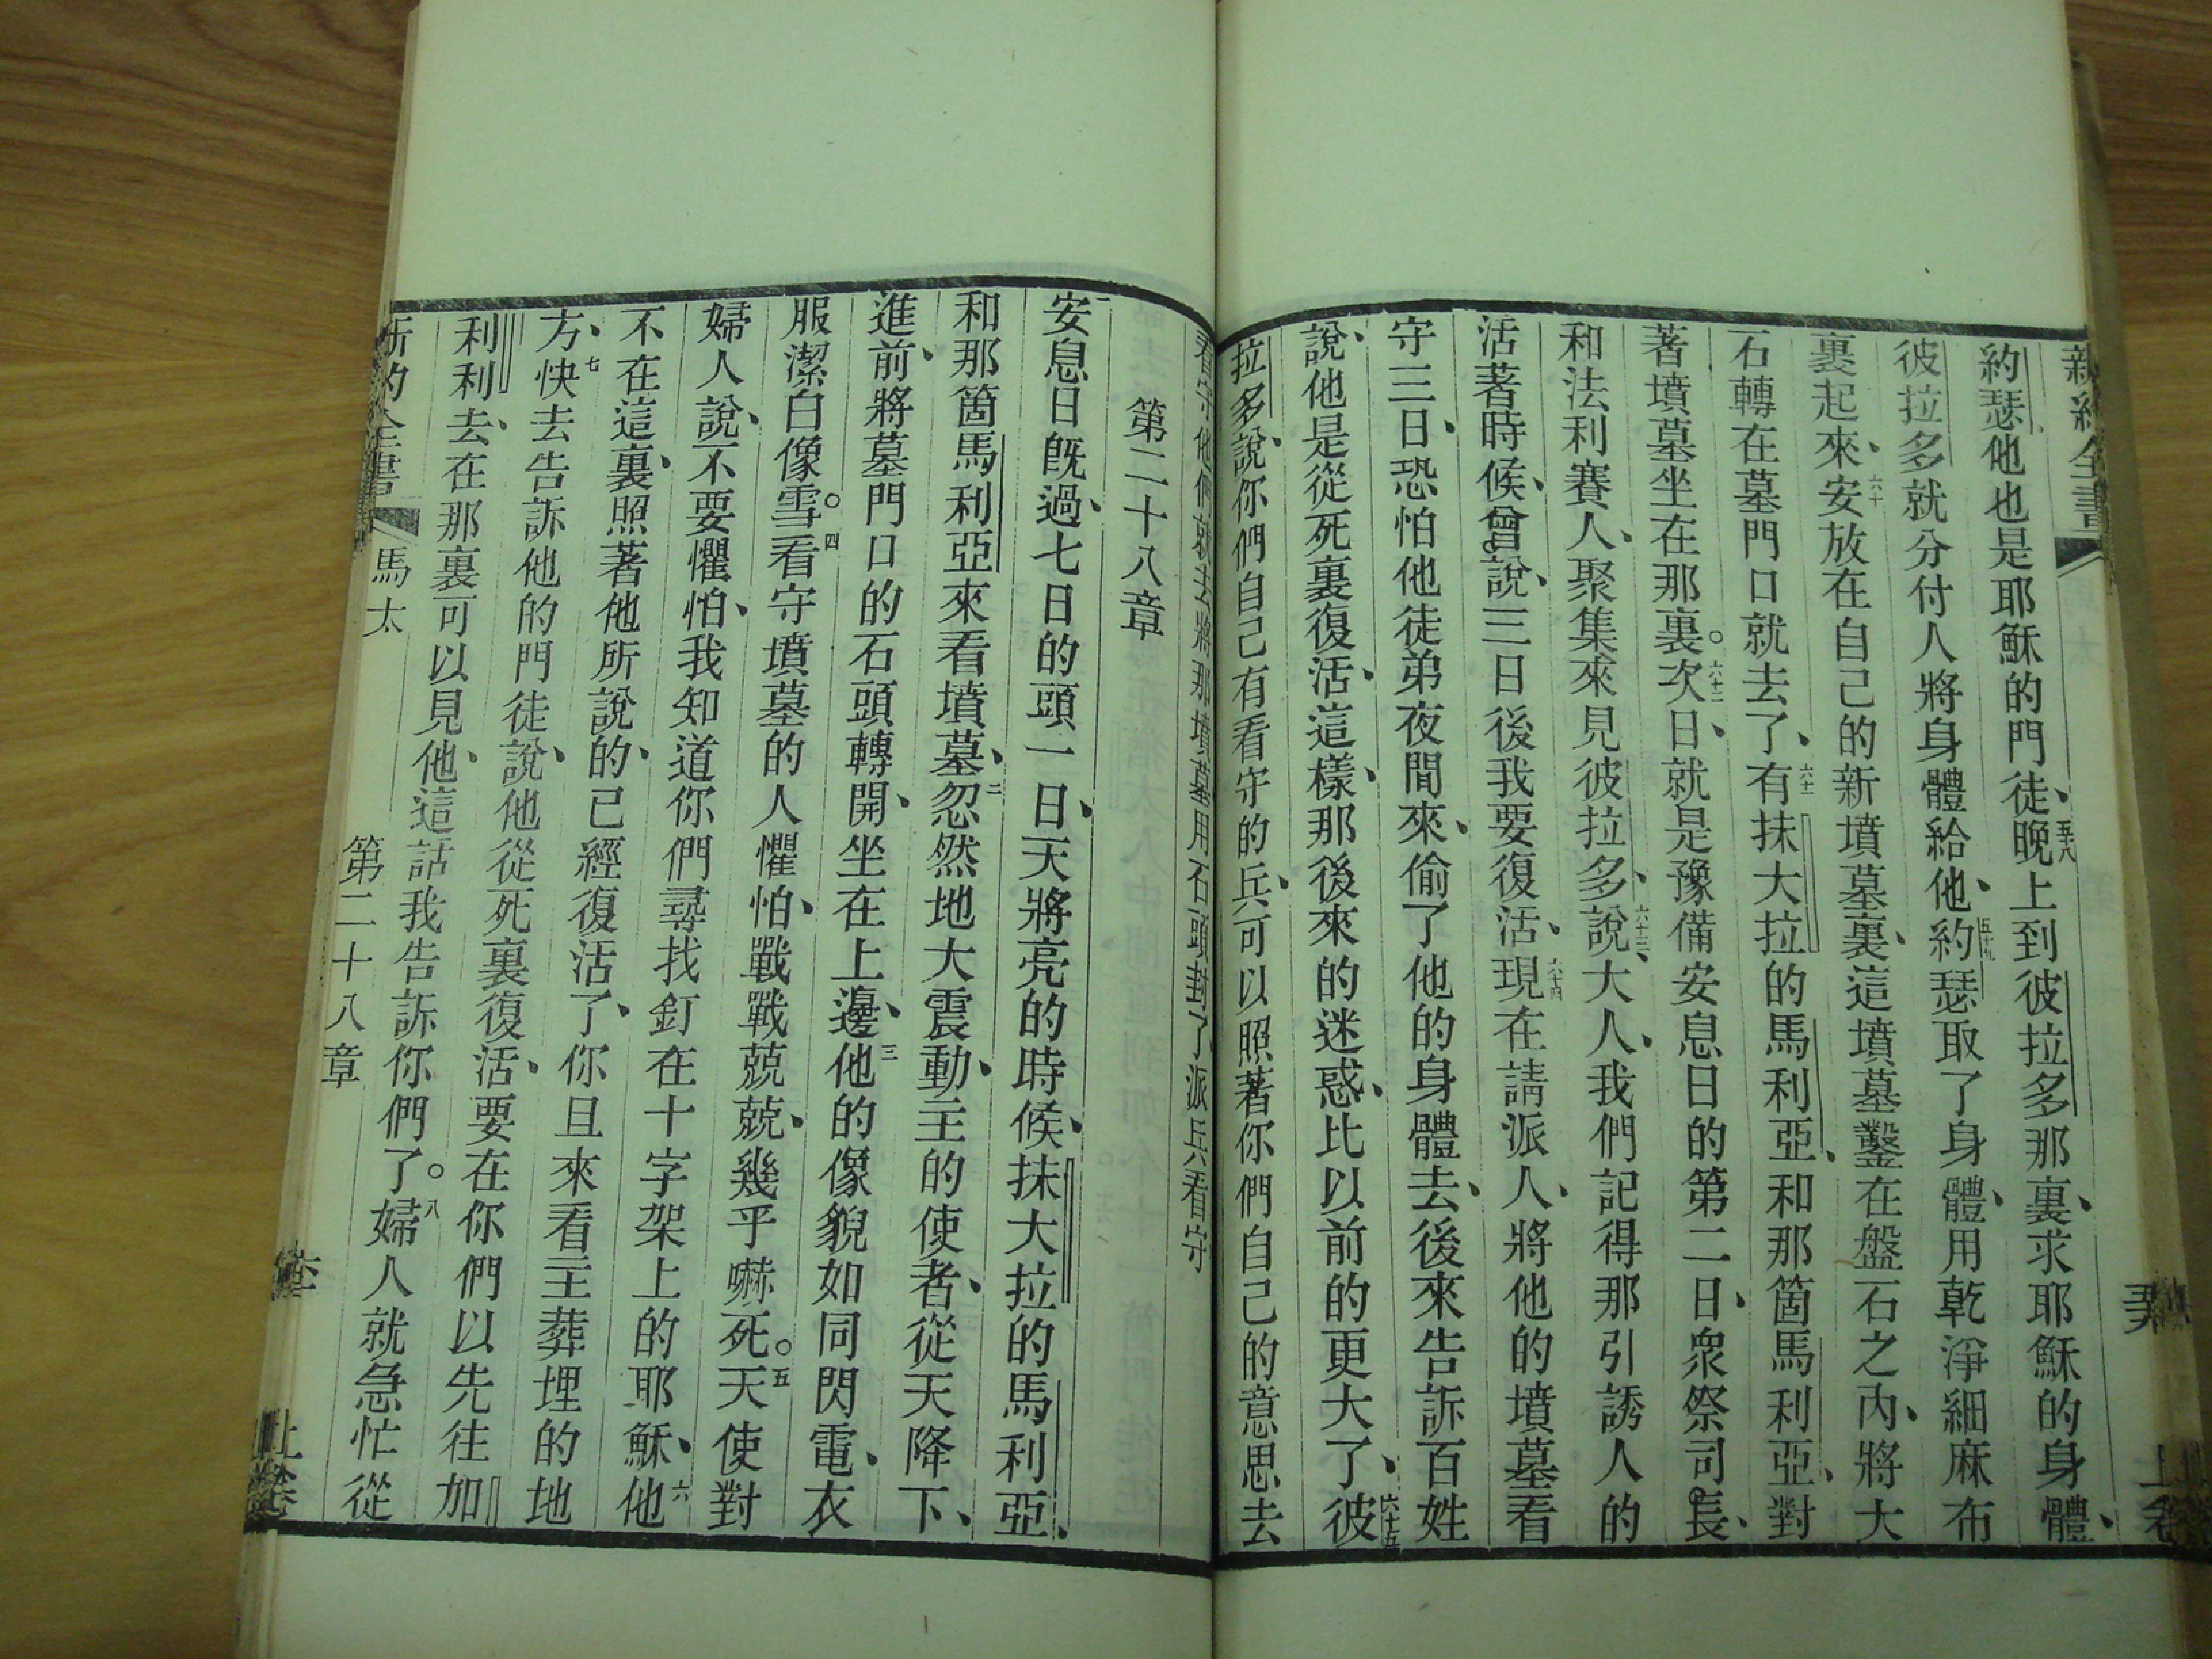 新約全書
約瑟他也是耶穌的門徒、五十八晚上到彼拉多那裏、求耶穌的身體、
彼拉多就分付人將身體給他、五十九約瑟取了身體、用乾淨細麻布
裹起來、六十安放在自己的新墳墓裏、這墳墓鑿在盤石之內、將大
石轉在墓門口就去了、六十一有抹大拉的馬利亞、和那箇馬利亞、對
著墳墓坐在那裏。六十二次日、就是豫備安息日的第二日、衆祭司長、
和法利賽人、聚集來見彼拉多、六十三說、大人、我們記得那引誘人的
活著時候、曾說、三日後我要復活、六十四現在請派人、將他的墳墓看
守三日、恐怕他徒弟夜間來、偷了他的身體去、後來告訴百姓
說、他是從死裏復活、這樣、那後來的迷惑、比以前的更大了、六十五彼
拉多說、你們自己有看守的兵、可以照著你們自己的意思去
上卷
看守他們就去將那墳墓用石頭封了派兵看守
第二十八章
一安息日旣過、七日的頭一日、天將亮的時候、抹大拉的馬利亞、
和那箇馬利亞來看墳墓、二忽然地大震動、主的使者、從天降下、
進前、將墓門口的石頭轉開、坐在上邊、三他的像貌如同閃電、衣
服潔白像雪。四看守墳墓的人懼怕、戰戰兢兢、幾乎嚇死。五天使對
婦人說、不要懼怕、我知道你們尋找釘在十字架上的耶穌、六他
不在這裏、照著他所說的、已經復活了、你且來看主葬埋的地
方、七快去告訴他的門徒、說他從死裏復活、要在你們以先往加
利利去、在那裏可以見他、這話我告訴你們了。八婦人就急忙從
新約全書 馬太 第二十八章